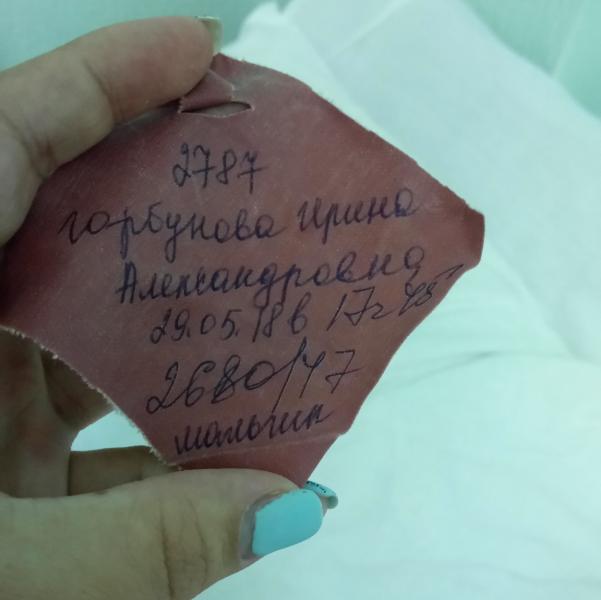 2787
Горбунова Ирина
Александровна
29.05.18 в 17ч 45
2680/47
мальчик